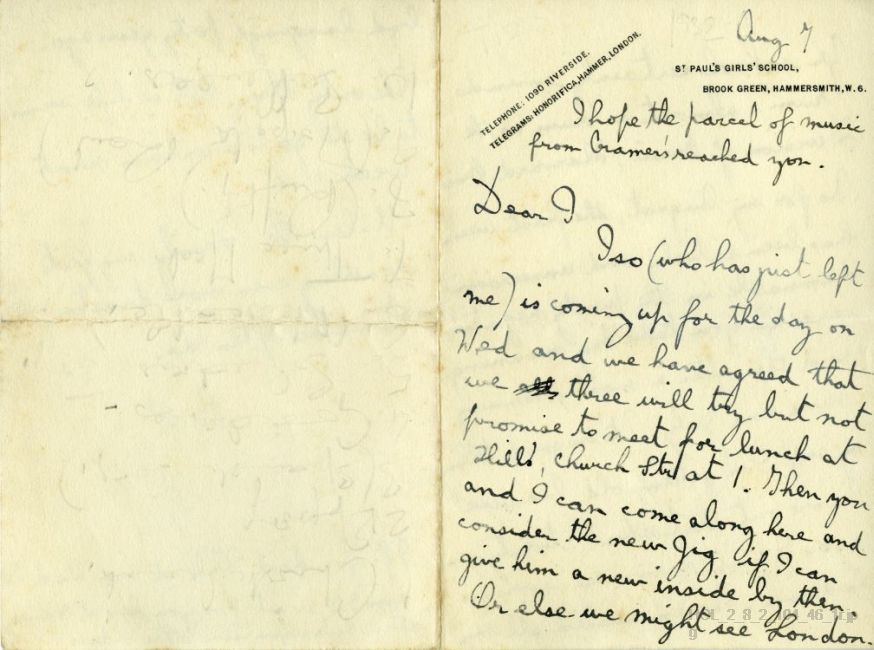 1932 Aug 7
TELEPHONE: 1090 RIVERSIDE.
TELEGRAMS: HONORIFICA, HAMMER, LONDON.
ST PAUL'S GIRLS' SCHOOL,
BROOK GREEN, HAMMERSMITH, W. 6.
I hope the parcel of music
from Cramer's reached you.
Dear I
Iso (who has just left
me) is coming up for the day on
Wed and we have agreed that
we all three will try but not
promise to meet for lunch at
Hills', Church Str at 1. Then you
and I can come along here and
consider the new Jig if I can
give him a new inside by then.
Or else we might see London.